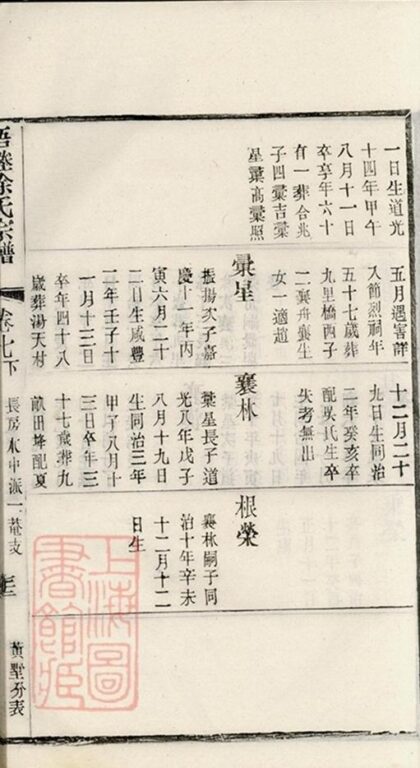 一日生道光
十四年甲午
八月十一日
卒享年六十
有一葬合兆
子四彙吉彙
星彙高彙照
五月遇害詳
入節烈祠年
五十七歲葬
九里橋西子
二襄舟襄生
女一適趙
彙星
振揚次子嘉
慶十一年丙
寅六月二十
二日生咸豐
一年壬子十
一月十三日
卒年四十八
歲葬湯天村
十二月二十
九日生同治
二年癸亥卒
配吳氏生卒
失考無出
襄林
彙星長子道
光八年戊子
八月十九日
生同治三年
甲子八月十
三日卒年三
十七歲葬九
畝田塝配夏
根榮
襄林嗣子同
治十年辛未
十二月十二
日生
梧塍徐氏宗譜
卷七下
長房水中派一菴支
黃墅分表
上海圖書館藏